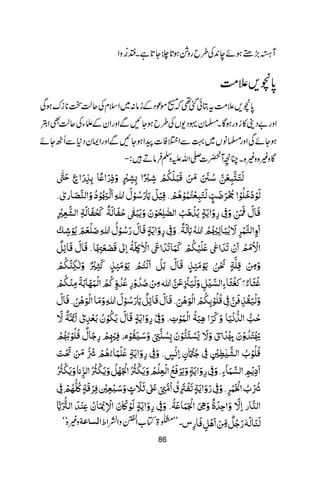 آہستہ بڑھتے ہوئے چاند کی طرح روشن ہوتا چلا جاتا ہے۔ فتدبروا
پانچویں علامت
پانچویں علامت یہ بتائی گئی تھی کہ مسیح موعود کے زمانہ میں اسلام کی حالت سخت نازک ہوگی
اور بے دینی کا زور ہوگا۔ مسلمان یہودیوں کی طرح ہو جائیں گے اور ان کے علماء کی حالت بھی ابتر
ہو جائے گی اور مسلمانوں میں بہت سے اختلافات پیدا ہو جائیں گے اور ایمان دنیا سے اُٹھ جائے
گا وغیرہ وغیرہ۔ چنانچہ آنحضرت صلی اللہ علیہ وسلم فرماتے ہیں:-
لَتَتَّبِعَنَّ سُنَنَ مَنْ قَبْلَكُمْ شِبْرًا بِشِبْرٍ وَذِرَاعًا بِذِرَاعٍ حَتَّى
لَوْ دَخَلُوْا جُحْرَ ضَبٍّ تَبِعْتُمُوْهُمْ۔ قِيْلَ يَا رَسُوْلَ اللهِ الْيَهُوْدَ وَالنَّصَارٰى
قَالَ فَمَنْ وَفِيْ رِوَايَةٍ يَذْهَبُ الصَّالِحُوْنَ وَيَبْقٰى حُفَالَةٌ كَحُفَالَةِ الشَّعِيْرِ
اَوِ التَّمَرِ لَا يُبَالِيْهِمُ اللهُ بَالَةً۔ وَفِيْ رِوَايَةٍ قَالَ رَسُوْلُ اللهِ صَلْعَمْ يُوْشِكُ
الْاُمَمُ اَنْ تَدَاعٰى عَلَيْكُمْ كَمَا تَدَاعَى الْاٰكِلَةُ اِلٰى قَصْعَتِهَا۔ قَالَ قَائِلٌ
وَمِنْ قِلَّةٍ نَحْنُ يَوْمَئِذٍ قَالَ بَلْ اَنْتُمْ يَوْمَئِذٍ كَثِيْرٌ وَلٰكِنَّكُمْ
غُثَاءٌ كَغُثَاءِ السَّيْلِ وَلَيَنْزِعَنَّ اللهُ مِنْ صُدُوْرِ عَدُوِّكُمُ الْمَهَابَةَ مِنْكُمْ
وَلَيَقْذِفَنَّ فِيْ قُلُوْبِكُمُ الْوَهْنَ۔ قَالَ قَائِلٌ يَا رَسُوْلَ اللهِ وَمَا الْوَهْنُ۔ قَالَ
حُبُّ الدُّنْيَا وَكَرَاهِيَةُ الْمَوْتِ۔ وَفِيْ رِوَايَةٍ قَالَ يَكُوْنُ بَعْدِيْ اَئِمَّةٌ لَا
يَهْتَدُوْنَ بِهُدَايَ وَلَا يَسْتَنُّوْنَ بِسُنَّتِيْ وَسَيَقُوْمُ فِيْهِمْ رِجَالٌ قُلُوْبُهُمْ
قُلُوْبُ الشَّيٰطِيْنِ فِيْ جُثْمَانِ اِنْسٍ۔ وَفِيْ رِوَايَةٍ عُلَمَاءُهُمْ شَرُّ مَنْ تَحْتَ
اَدِيْمِ السَّمَاءِ۔ وَفِيْ رِوَايَةٍ يُرْفَعُ الْعِلْمُ وَيَكْثُرُ الْجَهْلُ وَيَكْثُرُ الزِّنَا وَيَكْثُرُ
شُرْبُ الْخَمْرِ۔ وَفِيْ رِوَايَةٍ تَفْتَرِقُ اُمَّتِيْ عَلٰى ثَلَاثٍ وَّسَبْعِيْنَ فِرْقَةٍ كُلُّهُمْ فِي
النَّارِ اِلَّا وَاحِدَةً وَهِيَ الْجَمَاعَةُ۔ وَفِيْ رِوَايَةٍ لَوْ كَانَ الْاِيْمَانُ عِنْدَ الثُّرَيَّا
لَنَالَهٗ رَجُلٌ مِّنْ اَهْلِ فَارِسَ۔ ‘‘مشکوٰۃ کتاب الفتن واشراط الساعۃ وغیرہ’’
86